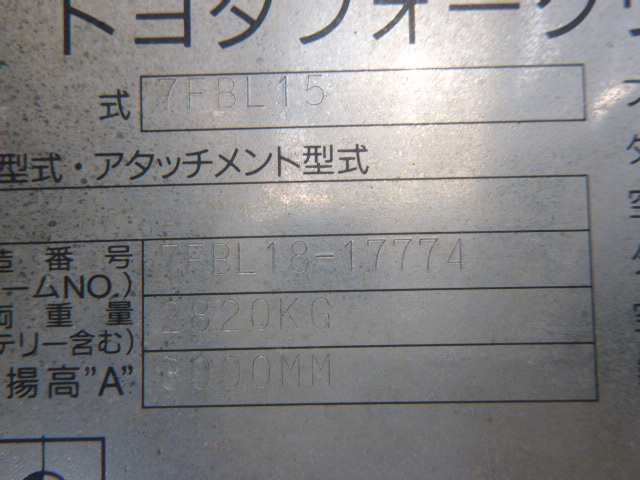 トヨタフォークリ
式 7FBL15
型式・アタッチメント型式
造番号 7FBL18-17774
ームNO.)
両重量 2820KG
テリー含む)
揚高"A" 3000MM